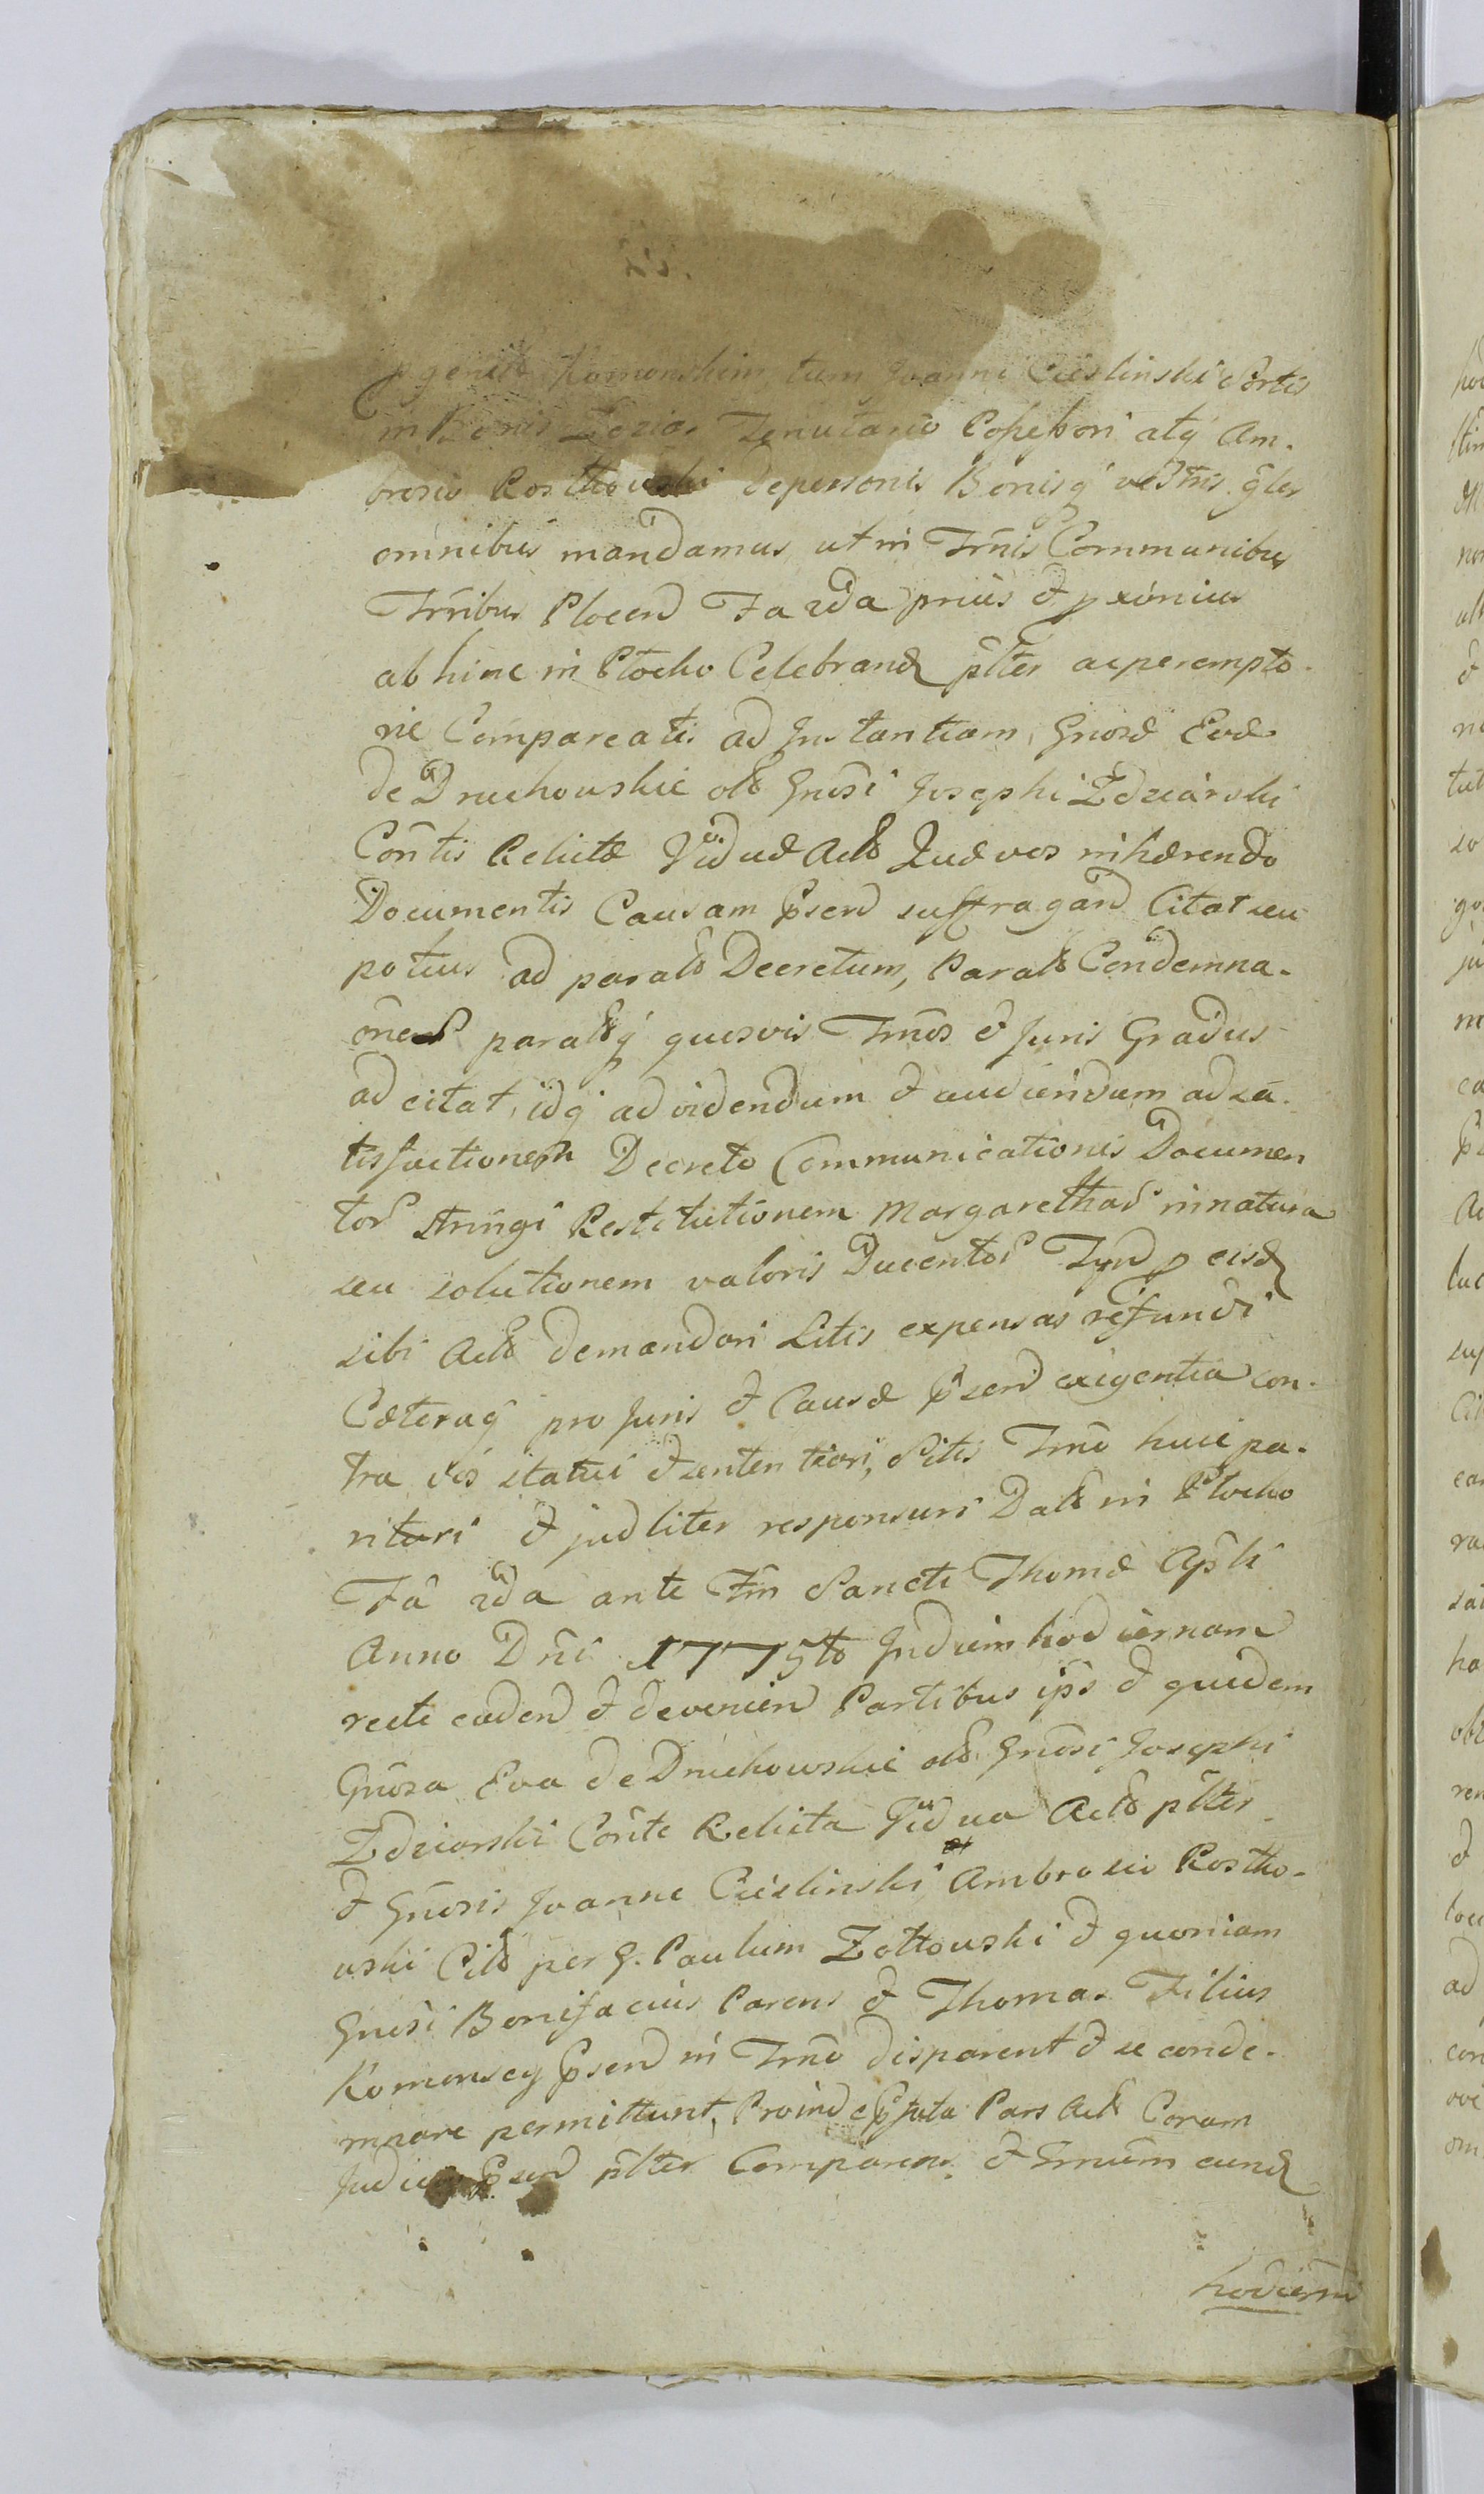 genitis Komonskim, tum Joanni Cieslinski Sortis
in Bonis Zozia. Tenutario Possessori atq̃ Am-
brosio Rosthowski depersonis Bonisq̃ vestris gñler
omnibus mandamus ut in Trñis Communibus
Trñribus Plocen Fa 2da prius & pximius
ab hinc in Płocko Celebrand pñlter acperempto-
rie Compareatis ad Instantiam Gnosæ Evæ
de Druchowskie olo Gnosi Josephi Zdziarski
Coñtis Relictæ Viduæ Acto Quæ vos inhærendo
Documentis Causam Psen suffragan Citat seu
potius ad parato Decretum, Parato Condemna-
oñes paratoq̃ quosvis Trños & Juris Gradus
adcitat, idq̃ ad videndum & audiendum ad sa-
tisfactionem Decreto Communicationis Documen
tor stringi Restitutionem Margarethar in natura
seu solutionem valoris Ducentor Tyn p eisd
sibi Acto demandari Litis expensas refundi
Cæteraq̃ pro Juris & Causæ Psen exigentia con-
tra vos statui & sententiari, Sitis Trño huic pa-
rituri & judliter responsuri Dato in Płocko
Fa 2da ante Fm Sancti Thomæ Apsli
Anno Dñi 1775to In diem hodiernam
recte caden & devenien Partibus ipis & quidem
Gnosa Eva de Druchowskie olo Gnosi Josephi
Zdziarski Coñte Relicta Vidua Acto pñlter
& Gnosis Joanne Cieslinski & Ambrosio Rostko-
wski Cito per G. Paulum Zołtowski & quoniam
Gnosi Bonifacius Parens & Thomas Filius
Komonscy Psen in Trño disparent & se conde-
mnare permittunt, Proinde Pfata Pars Acto Coram
Judicio Psen pñlter Comparens & Trñum eund
hodiernũ